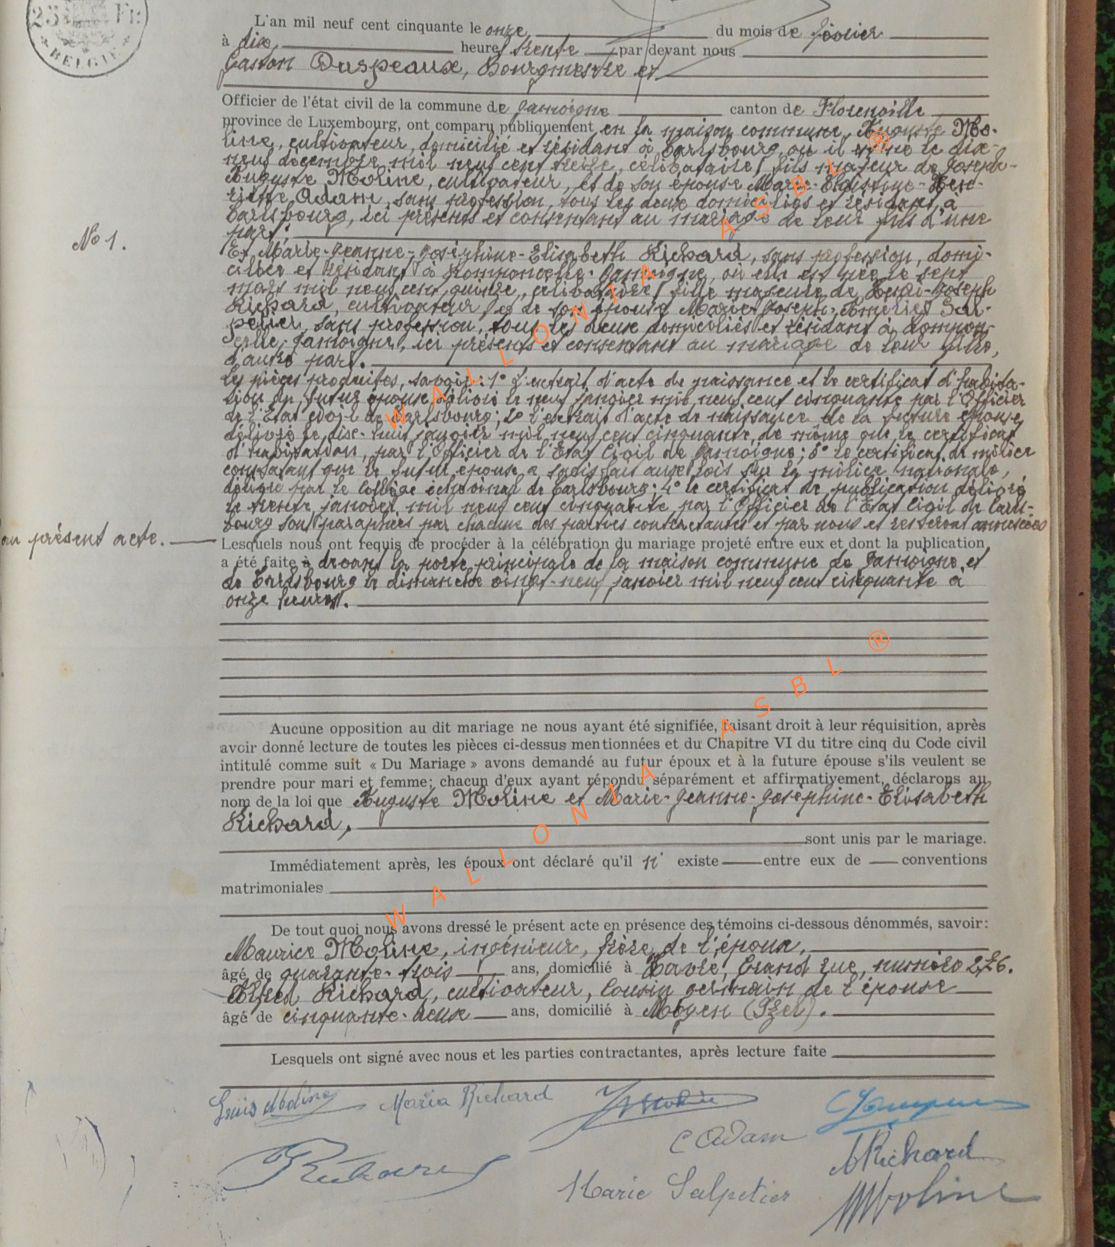 L'an mil neuf cent cinquante le onze du mois de février
à dix heures trente par devant nous
Gaston Duspeaux, Bourgmestre et
Officier de l'état civil de la commune de Jamoigne canton de Florenville
province de Luxembourg, ont comparu publiquement en la maison commune, Auguste Mo-
line, cultivateur, domicilié et résidant à Carlsbourg, où il est né le dix
neuf décembre mil neuf cent treize, célibataire, fils majeur de Joseph-
Auguste Moline, cultivateur, et de son épouse Marie-Ernestine-Hen-
riette Adam, sans profession, tous les deux domiciliés et résidant à
Carlsbourg, ici présents et consentant au mariage de leur fils d'une
part.
N° 1.
Et Marie-Jeanne-Joséphine-Elisabeth Richard, sans profession, domi-
ciliée et résidant à Romponcelle-Jamoigne, où elle est née le sept
mars mil neuf cent quinze, célibataire, fille majeure de Henri-Joseph
Richard, cultivateur, et de son épouse Marie-Joseph- Sal-
petier, sans profession, tous les deux domiciliés et résidant à Rompon-
celle-Jamoigne, ici présents et consentant au mariage de leur fille,
d'autre part.
Les pièces produites, savoir: 1° L'extrait d'acte de naissance et le certificat d'habita-
tion du futur époux, délivré le neuf janvier mil neuf cent cinquante par l'Officier
de l'Etat civil de Carlsbourg; 2° l'extrait d'acte de naissance de la future épouse,
délivré le dix-huit janvier mil neuf cent cinquante, de même que le certificat
d'habitation, par l'Officier de l'Etat Civil de Jamoigne; 3° le certificat de milice
constatant que le futur époux a satisfait aux lois sur la milice nationale,
délivré par le Collège échevinal de Carlsbourg; 4° le certificat de publication délivré
le trente janvier mil neuf cent cinquante par l'Officier de l'Etat Civil de Carls-
bourg sont paraphées par chacune des parties contractantes et par nous et resteront annexées
au présent acte.
Lesquels nous ont requis de procéder à la célébration du mariage projeté entre eux et dont la publication
a été faite devant la porte principale de la maison commune de Jamoigne et
de Carlsbourg le dimanche vingt-neuf janvier mil neuf cent cinquante à
onze heures.
Aucune opposition au dit mariage ne nous ayant été signifiée, faisant droit à leur réquisition, après
avoir donné lecture de toutes les pièces ci-dessus mentionnées et du Chapitre VI du titre cinq du Code civil
intitulé comme suit « Du Mariage » avons demandé au futur époux et à la future épouse s'ils veulent se
prendre pour mari et femme; chacun d'eux ayant répondu séparément et affirmativement, déclarons au
nom de la loi que Auguste Moline et Marie-Jeanne-Joséphine-Elisabeth
Richard,
sont unis par le mariage.
Immédiatement après, les époux ont déclaré qu'il n' existe entre eux de conventions
matrimoniales
De tout quoi nous avons dressé le présent acte en présence des témoins ci-dessous dénommés, savoir:
Maurice Moline, ingénieur, frère de l'époux,
âgé de quarante-trois ans, domicilié à Havré, Grand rue, numéro 226.
Alfred Richard, cultivateur, cousin germain de l'épouse
âgé de cinquante-deux ans, domicilié à Moyen (Izel).
Lesquels ont signé avec nous et les parties contractantes, après lecture faite
Moline Maria Richard
C Adam
Richard ARichard
Marie Salpetier MMoline
WALLONIA ASBL ®
WALLONIA ASBL ®